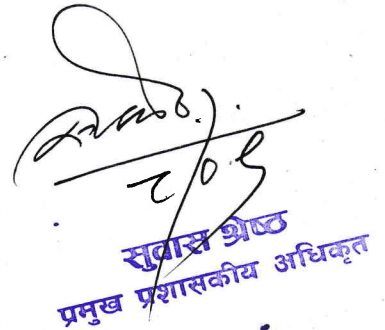 ८/०९
सुवास श्रेष्ठ
प्रमुख प्रशासकीय अधिकृत